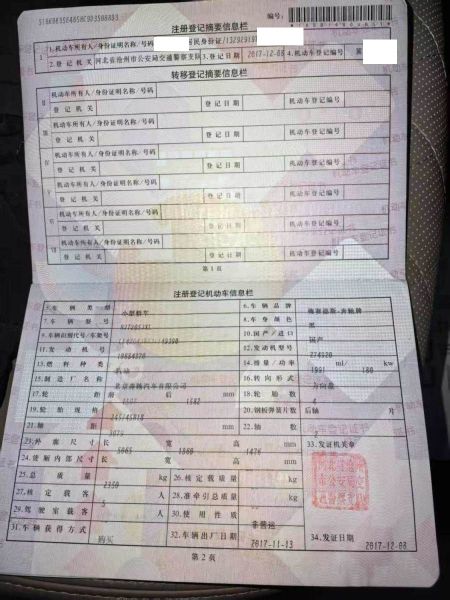 注册登记摘要信息栏
编号:
1.机动车所有人/身份证明名称/号码 居民身份证/
2.登记机关 河北省沧州市公安局交通警察支队 3.登记日期 2017-12-08 4.机动车登记编号 冀
转移登记摘要信息栏
机动车所有人/身份证明名称/号码
登记机关 登记日期 机动车登记编号
机动车所有人/身份证明名称/号码
登记机关 登记日期 机动车登记编号
机动车所有人/身份证明名称/号码
登记机关 登记日期 机动车登记编号
机动车所有人/身份证明名称/号码
登记机关 登记日期 机动车登记编号
机动车所有人/身份证明名称/号码
登记机关 登记日期 机动车登记编号
机动车所有人/身份证明名称/号码
登记机关 登记日期 机动车登记编号
第1页
注册登记机动车信息栏
5.车辆类型 小型轿车 6.车辆品牌 梅赛德斯-奔驰牌
7.车辆型号 8.车身颜色 黑
9.车辆识别代号/车架号 10.国产/进口 国产
11.发动机号 12.发动机型号 274920
13.燃料种类 汽油 14.排量/功率 1991 ml/ 180 kw
15.制造厂名称 北京奔驰汽车有限公司 16.转向形式 方向盘
17.轮距 前 后 1582 mm 18.轮胎数 4
19.轮胎规格 245/45R18 20.钢板弹簧片数 后轴 片
21.轴距 3079 mm 22.轴数
23.外廓尺寸 长 5065 宽 1860 高 1476 mm 33.发证机关章
24.货厢内部尺寸 长 宽 高 mm
25.总质量 2350 kg 26.核定载质量 kg
27.核定载客 5 人 28.准牵引总质量 kg
29.驾驶室载客 人 30.使用性质 非营运
31.车辆获得方式 购买 32.车辆出厂日期 2017-11-13 34.发证日期 2017-12-08
第2页